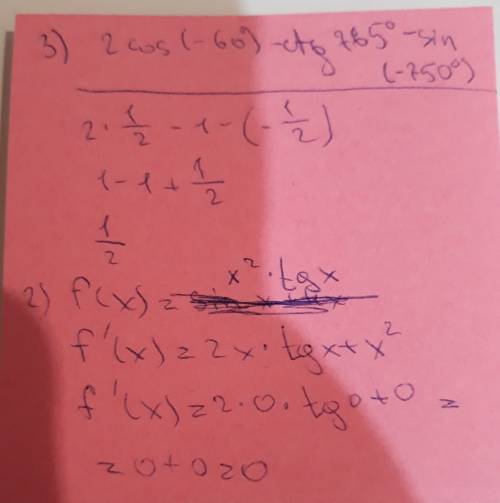 3) 2 cos (-60°) - ctg 765° - sin
(-750°)
2 · 1/2 - 1 - (- 1/2)
1 - 1 + 1/2
1/2
2) f(x) = x² · tg x
f'(x) = 2x · tgx + x²
f'(x) = 2 · 0 · tg0 + 0 =
= 0 + 0 = 0